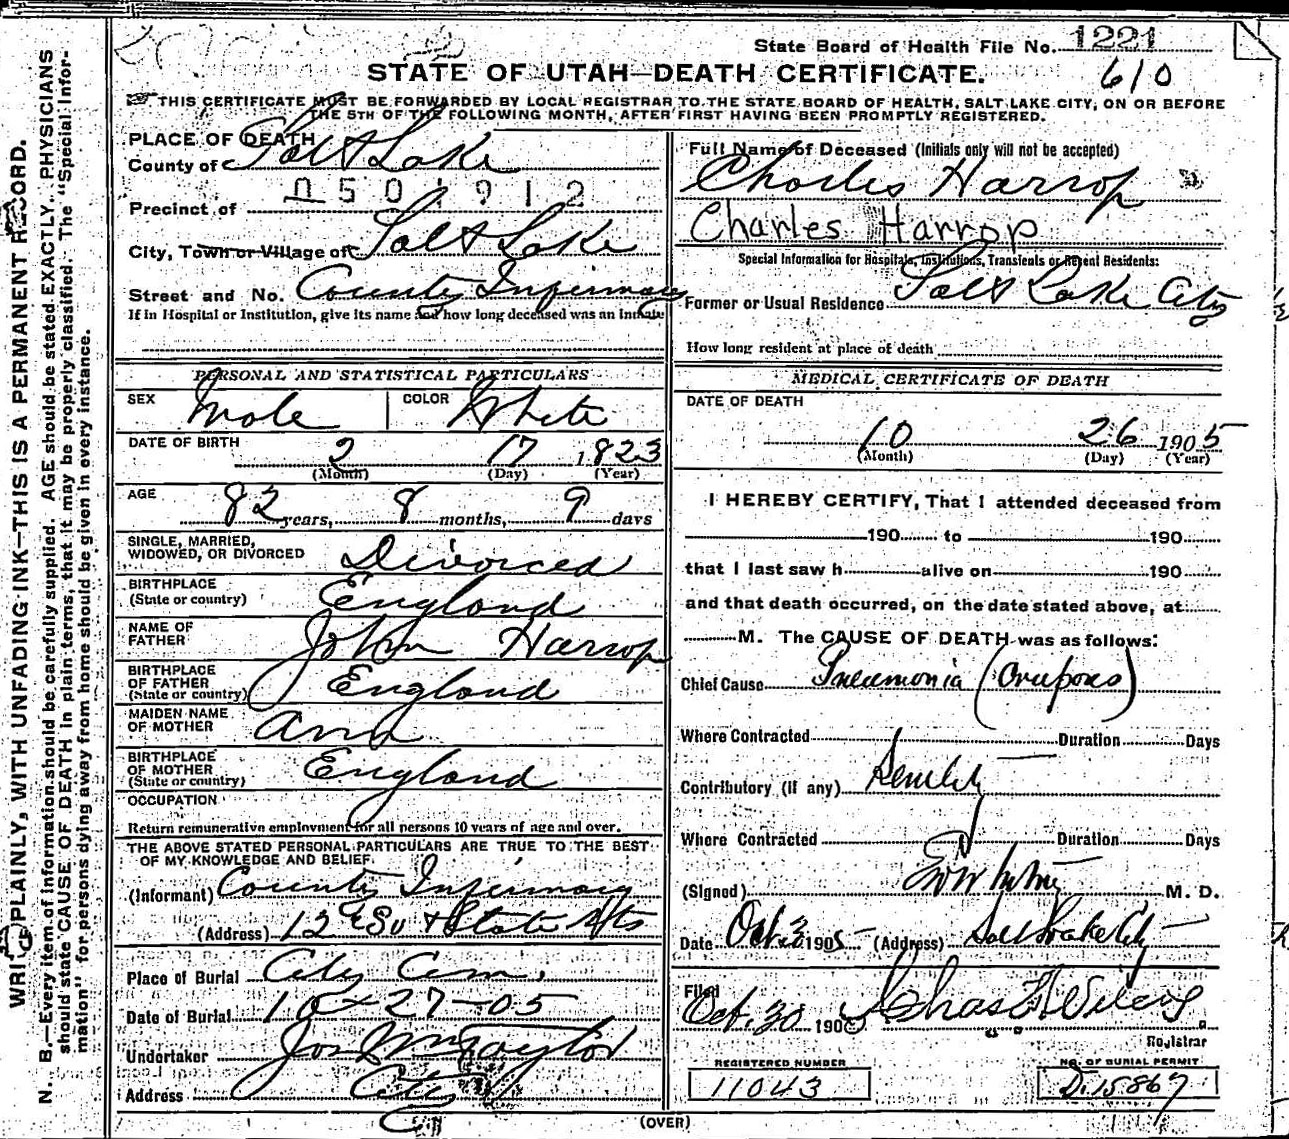 State Board of Health File No. 1221
610
STATE OF UTAH—DEATH CERTIFICATE.
THIS CERTIFICATE MUST BE FORWARDED BY LOCAL REGISTRAR TO THE STATE BOARD OF HEALTH, SALT LAKE CITY, ON OR BEFORE
THE 5TH OF THE FOLLOWING MONTH, AFTER FIRST HAVING BEEN PROMPTLY REGISTERED.
WRITE PLAINLY, WITH UNFADING INK—THIS IS A PERMANENT RECORD.
N. B.—Every item of information should be carefully supplied. AGE should be stated EXACTLY. PHYSICIANS
should state CAUSE OF DEATH in plain terms, that it may be properly classified. The "Special Infor-
mation" for persons dying away from home should be given in every instance.
PLACE OF DEATH
County of Salt Lake
Precinct of
City, Town or Village of Salt Lake
Street and No. County Infirmary
If in Hospital or Institution, give its name and how long deceased was an inmate
PERSONAL AND STATISTICAL PARTICULARS
SEX Male COLOR White
DATE OF BIRTH
2 17 1823
(Month) (Day) (Year)
AGE
82 years, 8 months, 9 days
SINGLE, MARRIED,
WIDOWED, OR DIVORCED Divorced
BIRTHPLACE
(State or country) England
NAME OF
FATHER John Harrop
BIRTHPLACE
OF FATHER
(State or country) England
MAIDEN NAME
OF MOTHER Ann
BIRTHPLACE
OF MOTHER
(State or country) England
OCCUPATION
Return remunerative employment for all persons 10 years of age and over.
THE ABOVE STATED PERSONAL PARTICULARS ARE TRUE TO THE BEST
OF MY KNOWLEDGE AND BELIEF.
(Informant) County Infirmary
(Address) 12th So & State Sts
Place of Burial City Cem.
Date of Burial 10-27-05
Undertaker Jos Wm Taylor
Address City
Full Name of Deceased (Initials only will not be accepted)
Charles Harrop
Charles Harrop
Special Information for Hospitals, Institutions, Transients or Recent Residents:
Former or Usual Residence Salt Lake City
How long resident at place of death
MEDICAL CERTIFICATE OF DEATH
DATE OF DEATH
10 26 1905
(Month) (Day) (Year)
I HEREBY CERTIFY, That I attended deceased from
190 to 190
that I last saw h alive on 190
and that death occurred, on the date stated above, at
M. The CAUSE OF DEATH was as follows:
Chief Cause Pneumonia (Croupous)
Where Contracted Duration Days
Contributory (if any) Senility
Where Contracted Duration Days
(Signed) M. D.
Date Oct. 1905 (Address) Salt Lake City
Filed
Oct. 30 190
Registrar
REGISTERED NUMBER
11043
NO. OF BURIAL PERMIT
D.15867
(OVER)